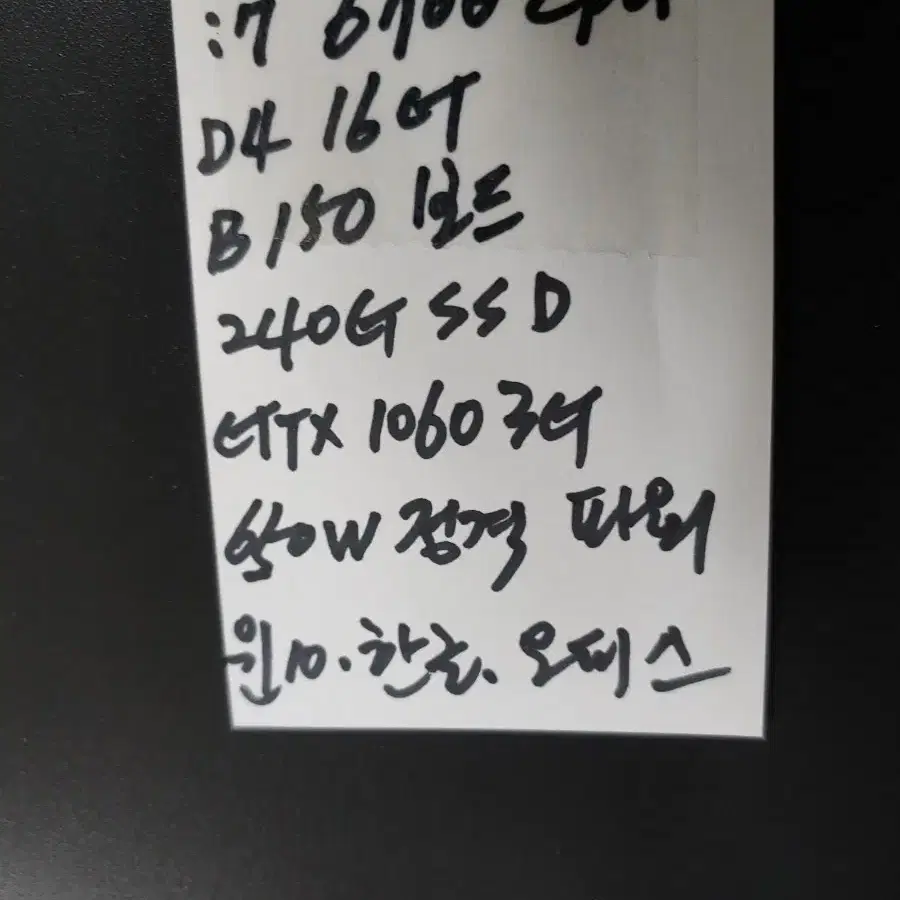 i7 6700 cpu
D4 16G
B150 보드
240G SSD
GTX 1060 3G
650W 정격 파워
윈10.한글.오피스